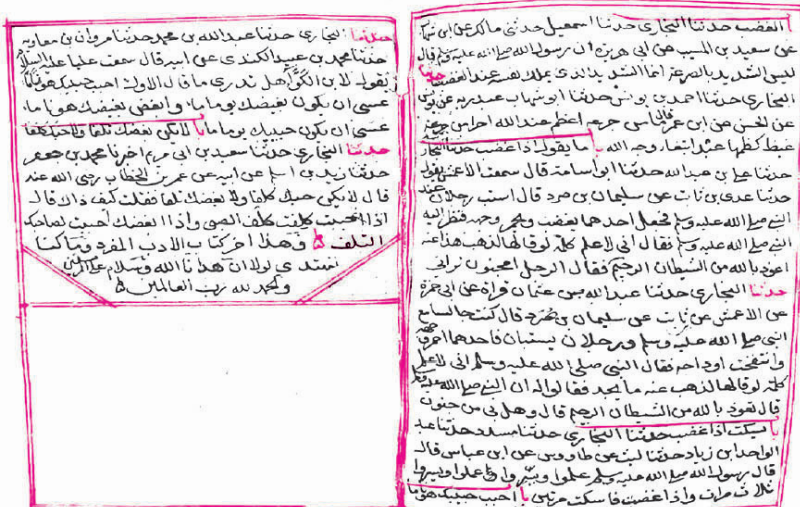 الغضب حدثنا البخاري حدثنا اسمعيل حدثني مالك عن ابن شهاب
عن سعيد بن المسيب عن ابي هريرة ان رسول الله صلى الله عليه وسلم قال
ليس الشديد بالصرعة انما الشديد الذي يملك نفسه عند الغضب حدثنا
البخاري حدثنا احمد بن يونس حدثنا ابو شهاب عبد ربه عن يونس
عن الحسن عن ابن عمر قال ما من جرعة اعظم عند الله اجرا من جرعة
غيظ كظمها عبد ابتغاء وجه الله با ما يقول اذا غضب حدثنا البخاري
حدثنا علي بن عبد الله حدثنا ابو اسامة قال سمعت الاعمش يقول
حدثنا عدي بن ثابت عن سليمان بن صرد قال استب رجلان عند
النبي صلى الله عليه وسلم فجعل احدهما يغضب ويحمر وجهه فنظر اليه
النبي صلى الله عليه وسلم فقال اني لاعلم كلمة لو قالها لذهب هذا عنه
اعوذ بالله من الشيطان الرجيم فقام الرجل امجنون تراني
حدثنا البخاري حدثنا عبد الله بن عثمان قراة عن ابي حمزة
عن الاعمش عن ثابت عن سليمان بن صرد قال كنت جالسا مع
النبي صلى الله عليه وسلم ورجلان يستبان فاحدهما احمر وجهه
وانتفخت اوداجه فقال النبي صلى الله عليه وسلم اني لاعلم
كلمة لو قالها لذهب عنه ما يجد فقالوا له ان النبي صلى الله عليه وسلم
قال تعوذ بالله من الشيطان الرجيم قال وهل بي من جنون
با يسكت اذا غضب حدثنا البخاري حدثنا مسدد حدثنا عبد
الواحد ابن زياد حدثنا ليث عن طاووس عن ابن عباس قال
قال رسول الله صلى الله عليه وسلم علموا ويسروا علموا ويسروا
ثلاث مرات واذا غضبت فاسكت مرتين با احبب حبيبك هونا ما
حدثنا البخاري حدثنا عبد الله بن محمد حدثنا مروان بن معاوية
حدثنا محمد بن عبيد الكندي عن ابيه قال سمعت عليا عليه السلام
يقول لابن الكوا هل تدري ما قال الاول احبب حبيبك هونا ما
عسى ان يكون بغيضك يوما ما وابغض بغيضك هونا ما
عسى ان يكون حبيبك يوما ما با لا يكن بغضك تلفا ولا حبك كلفا
حدثنا البخاري حدثنا سعيد بن ابي مريم اخبرنا محمد بن جعفر
حدثنا زيد بن اسلم عن ابيه عن عمر بن الخطاب رضي الله عنه
قال لا يكن حبك كلفا ولا بغضك تلفا فقلت كيف ذاك قال
اذا احببت كلفت كلف الصبي واذا ابغضت احببت لصاحبك
التلف وهذا اخر كتاب الادب المفرد وما كنا
لنهتدي لولا ان هدانا الله وسلام على المرسلين
والحمد لله رب العالمين